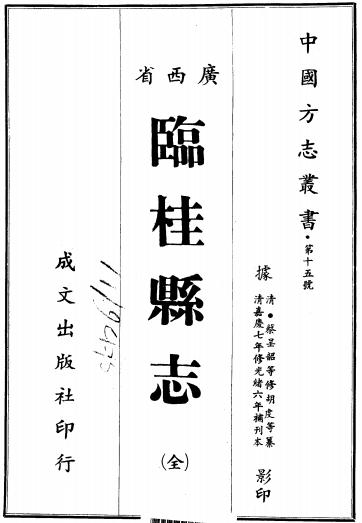 中國方志叢書・第十五號
據
清・蔡呈韶等修胡虔等纂
清嘉慶七年修光緒六年補刊本
影印
廣西省
臨桂縣志
(全)
成文出版社印行